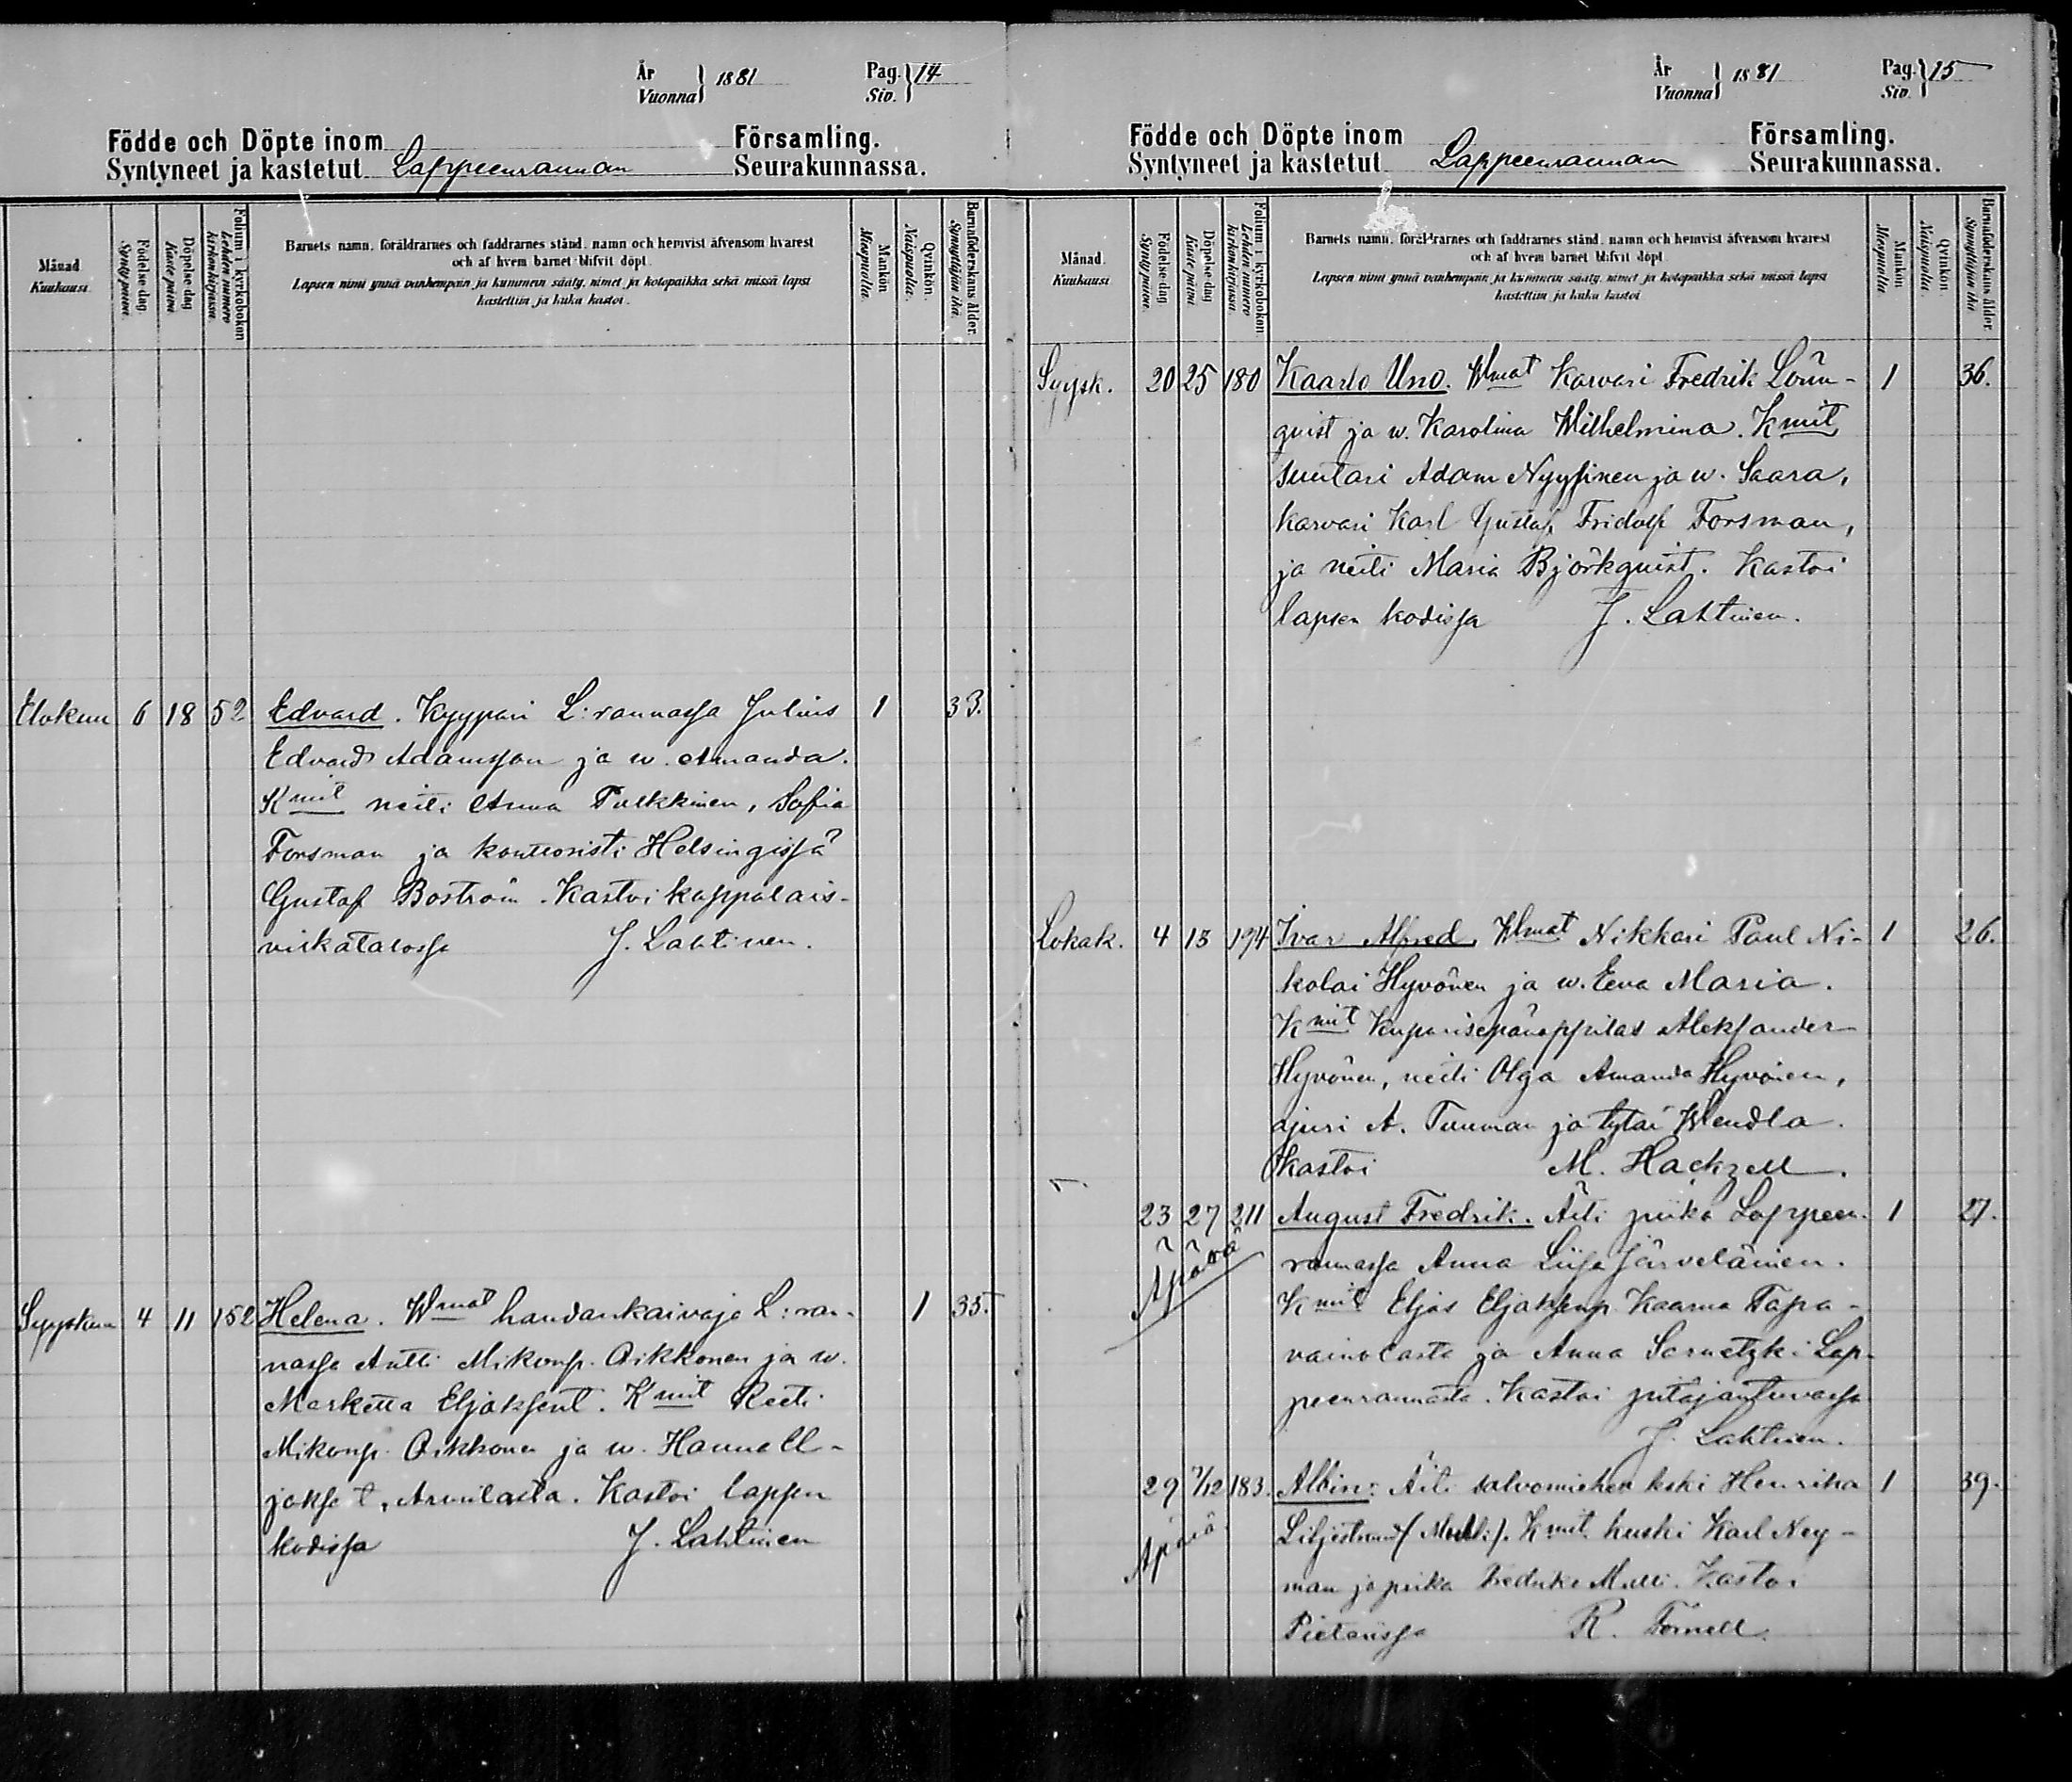 År
Vuonna } 1881 Pag. Siv. } 14
Födde och Döpte inom Församling.
Syntyneet ja kastetut Lappeenrannan Seurakunnassa.
Månad. Kuukausi
Födelse dag. Synty päivä.
Döpelse dag Kaste päivä
Folium i kyrkoboken Lehden numero kirkonkirjassa.
Barnets namn, föräldrarnes och faddrarnes stånd, namn och hemvist äfvensom hvarest
och af hvem barnet blifvit döpt.
Lapsen nimi ynnä vanhempain ja kummein sääty, nimet ja kotopaikka sekä missä lapsi
kastettiin ja kuka kastoi.
Mankön Miespuolia.
Qvinkön. Naispuolia.
Barnaföderskans ålder. Synnyttäjän ikä.
Elokuu 6 18 52 Edvard. Kyypari L:rannassa Julius 1 33.
Edvard Adamsson ja w. Amanda.
Kmit neiti Anna Pulkkinen, Sofia
Forsman ja kontoristi Helsingissä
Gustaf Boström. Kastoi kappalais-
virkatalossa J. Lahtinen.
Syyskuu 4 11 152 Helena. Wmat haudankaivaja L:ran- 1 35.
nassa Antti Mikonp. Oikkonen ja w.
Marketta Eljaksent. Kmit Reeti
Mikonp. Oikkonen ja w. Hanna El-
jakse t, Armilasta. Kastoi lapsen
kodissa J. Lahtinen
År
Vuonna } 1881 Pag. Siv. } 15
Födde och Döpte inom Församling.
Syntyneet ja kastetut Lappeenrannan Seurakunnassa.
Månad. Kuukausi
Födelse dag Synty päivä.
Döpelse dag Kaste päivä.
Folium i kyrkoboken Lehden numero kirkonkirjassa.
Barnets namn, föräldrarnes och faddrarnes stånd, namn och hemvist äfvensom hvarest
och af hvem barnet blifvit döpt.
Lapsen nimi ynnä vanhempain ja kummein sääty, nimet ja kotopaikka sekä missä lapsi
kastettiin ja kuka kastoi
Mankön Miespuolia.
Qvinkön. Naispuolia.
Barnaföderskans ålder. Synnyttäjän ikä
Syysk. 20 25 180 Kaarlo Uno. Wmat Karvari Fredrik Lönn- 1 36.
qvist ja w. Karolina Wilhelmina. Kmit
suutari Adam Nyyssinen ja w. Saara,
karvari Karl Gustaf Fridolf Forsman,
ja neiti Maria Björkqvist. Kastoi
lapsen kodissa J. Lahtinen.
Lokak. 4 13 194 Ivar Alfred. Wmat Nikkari Paul Ni- 1 26.
kolai Hyvönen ja w. Eeva Maria.
Kmit Kuparisepänoppilas Aleksander
Hyvönen, neiti Olga Amanda Hyvönen,
ajuri A. Tuuman ja tytär Wendla.
Kastoi M. Hackzell.
23 27 211 August Fredrik. Äiti piika Lappeen- 1 27.
Äpärä
rannassa Anna Liisa Järveläinen.
Kmit Eljas Eljaksenp. Kaarna Tapa-
vainolasta ja Anna Sarnetzki Lap-
peenrannasta. Kastoi pitäjäntuvassa
J. Lahtinen.
29 7/12 183. Albin. Äiti salvomiehen leski Henrika 1 39.
Äpärä
Liljestrand (Melli). Kmit kuski Karl Ney-
man ja piika Fredrika Melli. Kastoi
Pietarissa R. Törnell.